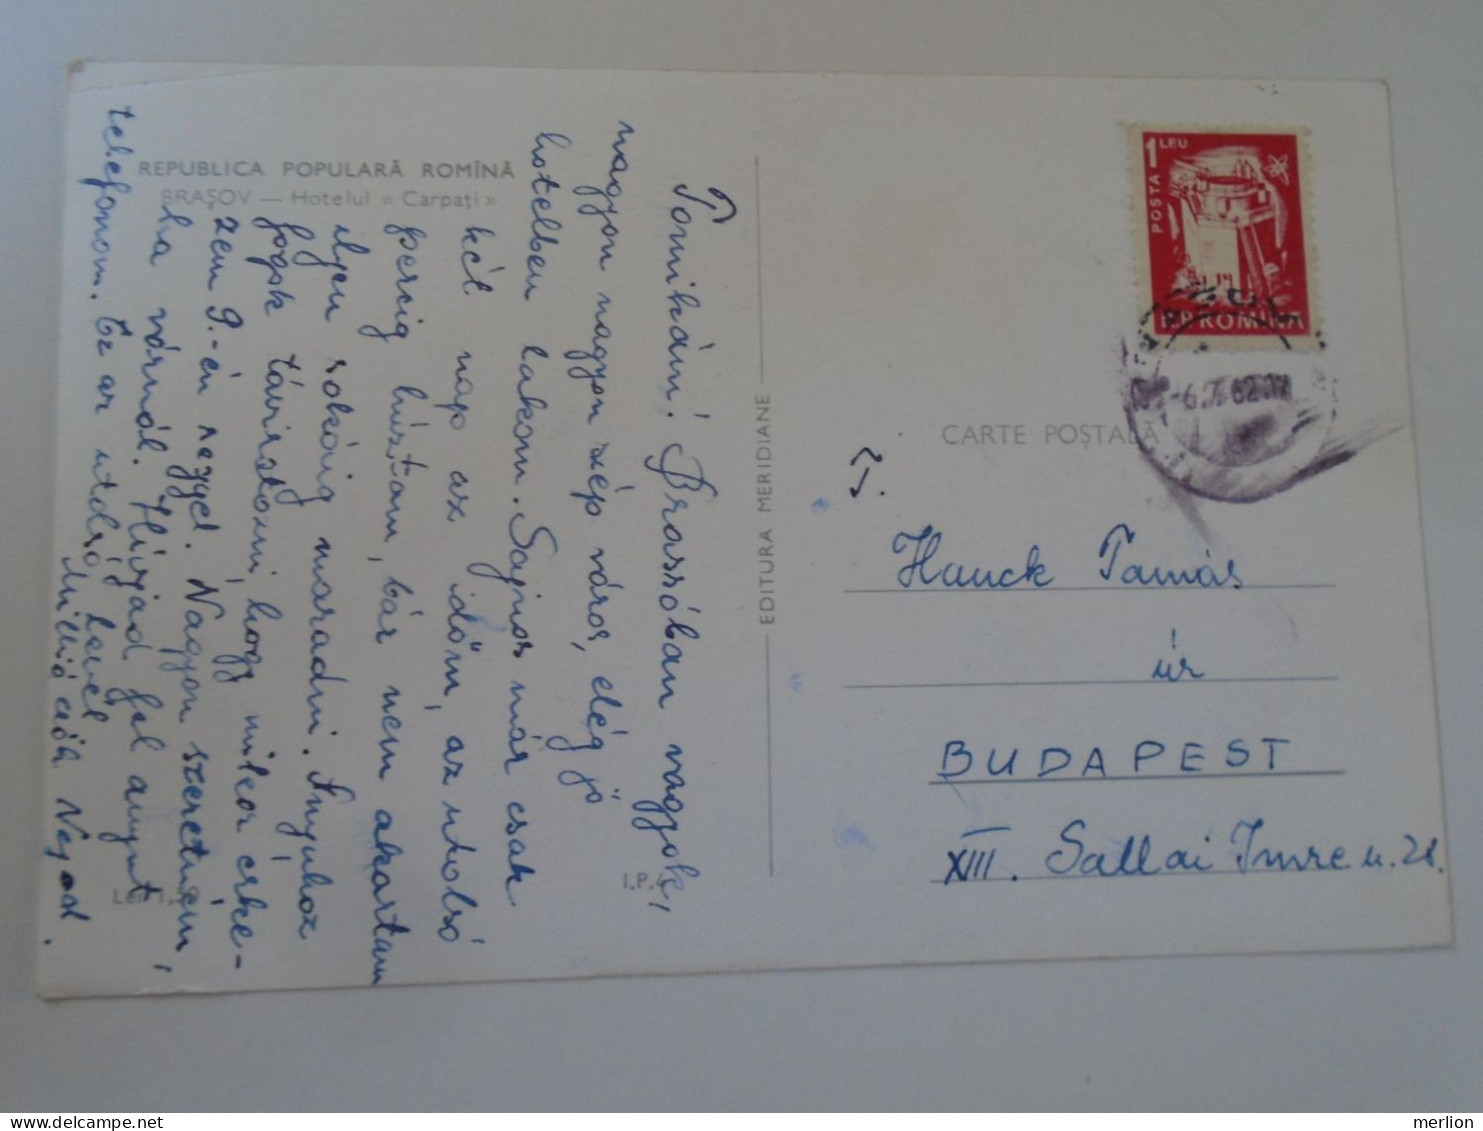 REPUBLICA POPULARĂ ROMÎNĂ
BRAȘOV — Hotelul « Carpați »
Tomikám! Brassóban vagyok,
nagyon nagyon szép város, elég jó
hotelben lakom. Sajnos már csak
két nap az időm, az utolsó
percig húztam, bár nem akartam
ilyen sokáig maradni. Inguhoz
fogok táviratozni, hogy mikor érke-
zem 9.-én reggel. Nagyon szeretném,
ha várnál. Hívjad fel anyut
telefonom. Ez az utolsó levél
Millió csók Neked.
EDITURA MERIDIANE
I.P.
POSTA 1 LEU
RP ROMINA
-6. 62
CARTE POȘTALĂ
T.
Hauck Tamás
úr
BUDAPEST
XIII. Sallai Imre u. 28.
merlion